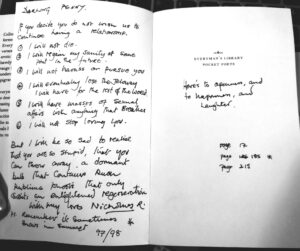 Darling Perry.
If you decide you do not wish us to
continue having a relationship.
① I will not die.
② I will retain my sanity of some
sort in the future.
③ I will not harass or pursue you
④ I will eventually lose the
I have for the rest of the world
⑤ I will have masses of sexual
affairs with anything that breathes
⑥ I will not stop loving you.
But I will be so sad to realise
that you are so stupid, that you
can throw away, a dormant
bulb that contains such
sublime that only
an enlightened regeneration
with my love Nicholas R.
Remember it sometimes
snows in summer
97/98
EVERYMAN'S LIBRARY
POCKET POETS
Here's to openness, and
to happiness, and
laughter.
page 17
page 185
page 215